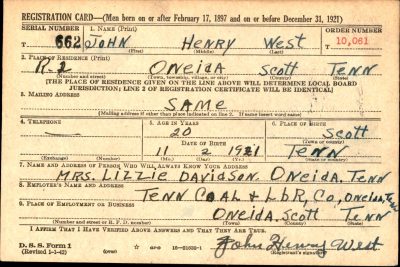 REGISTRATION CARD—(Men born on or after February 17, 1897 and on or before December 31, 1921)
SERIAL NUMBER 1. NAME (Print) ORDER NUMBER
662 JOHN Henry West 10,061
(First) (Middle) (Last)
2. PLACE OF RESIDENCE (Print)
R-2 ONEIDA Scott TENN
(Number and street) (Town, township, village, or city) (County) (State)
[THE PLACE OF RESIDENCE GIVEN ON THE LINE ABOVE WILL DETERMINE LOCAL BOARD
JURISDICTION; LINE 2 OF REGISTRATION CERTIFICATE WILL BE IDENTICAL]
3. MAILING ADDRESS
SAME
[Mailing address if other than place indicated on line 2. If same insert word same]
4. TELEPHONE 5. AGE IN YEARS 6. PLACE OF BIRTH
20 Scott
DATE OF BIRTH (Town or county)
11 2 1921 TENN
(Exchange) (Number) (Mo.) (Day) (Yr.) (State or country)
7. NAME AND ADDRESS OF PERSON WHO WILL ALWAYS KNOW YOUR ADDRESS
MRS. LIZZIE DAVIDSON. ONEIDA. TENN
8. EMPLOYER'S NAME AND ADDRESS
TENN COAL & LBR, CO, ONEIDA,
9. PLACE OF EMPLOYMENT OR BUSINESS
ONEIDA. Scott TENN
(Number and street or R. F. D. number) (Town) (County) (State)
I AFFIRM THAT I HAVE VERIFIED ABOVE ANSWERS AND THAT THEY ARE TRUE.
D. S. S. Form 1
(Revised 1-1-42) (over) John Henry West
(Registrant's signature)